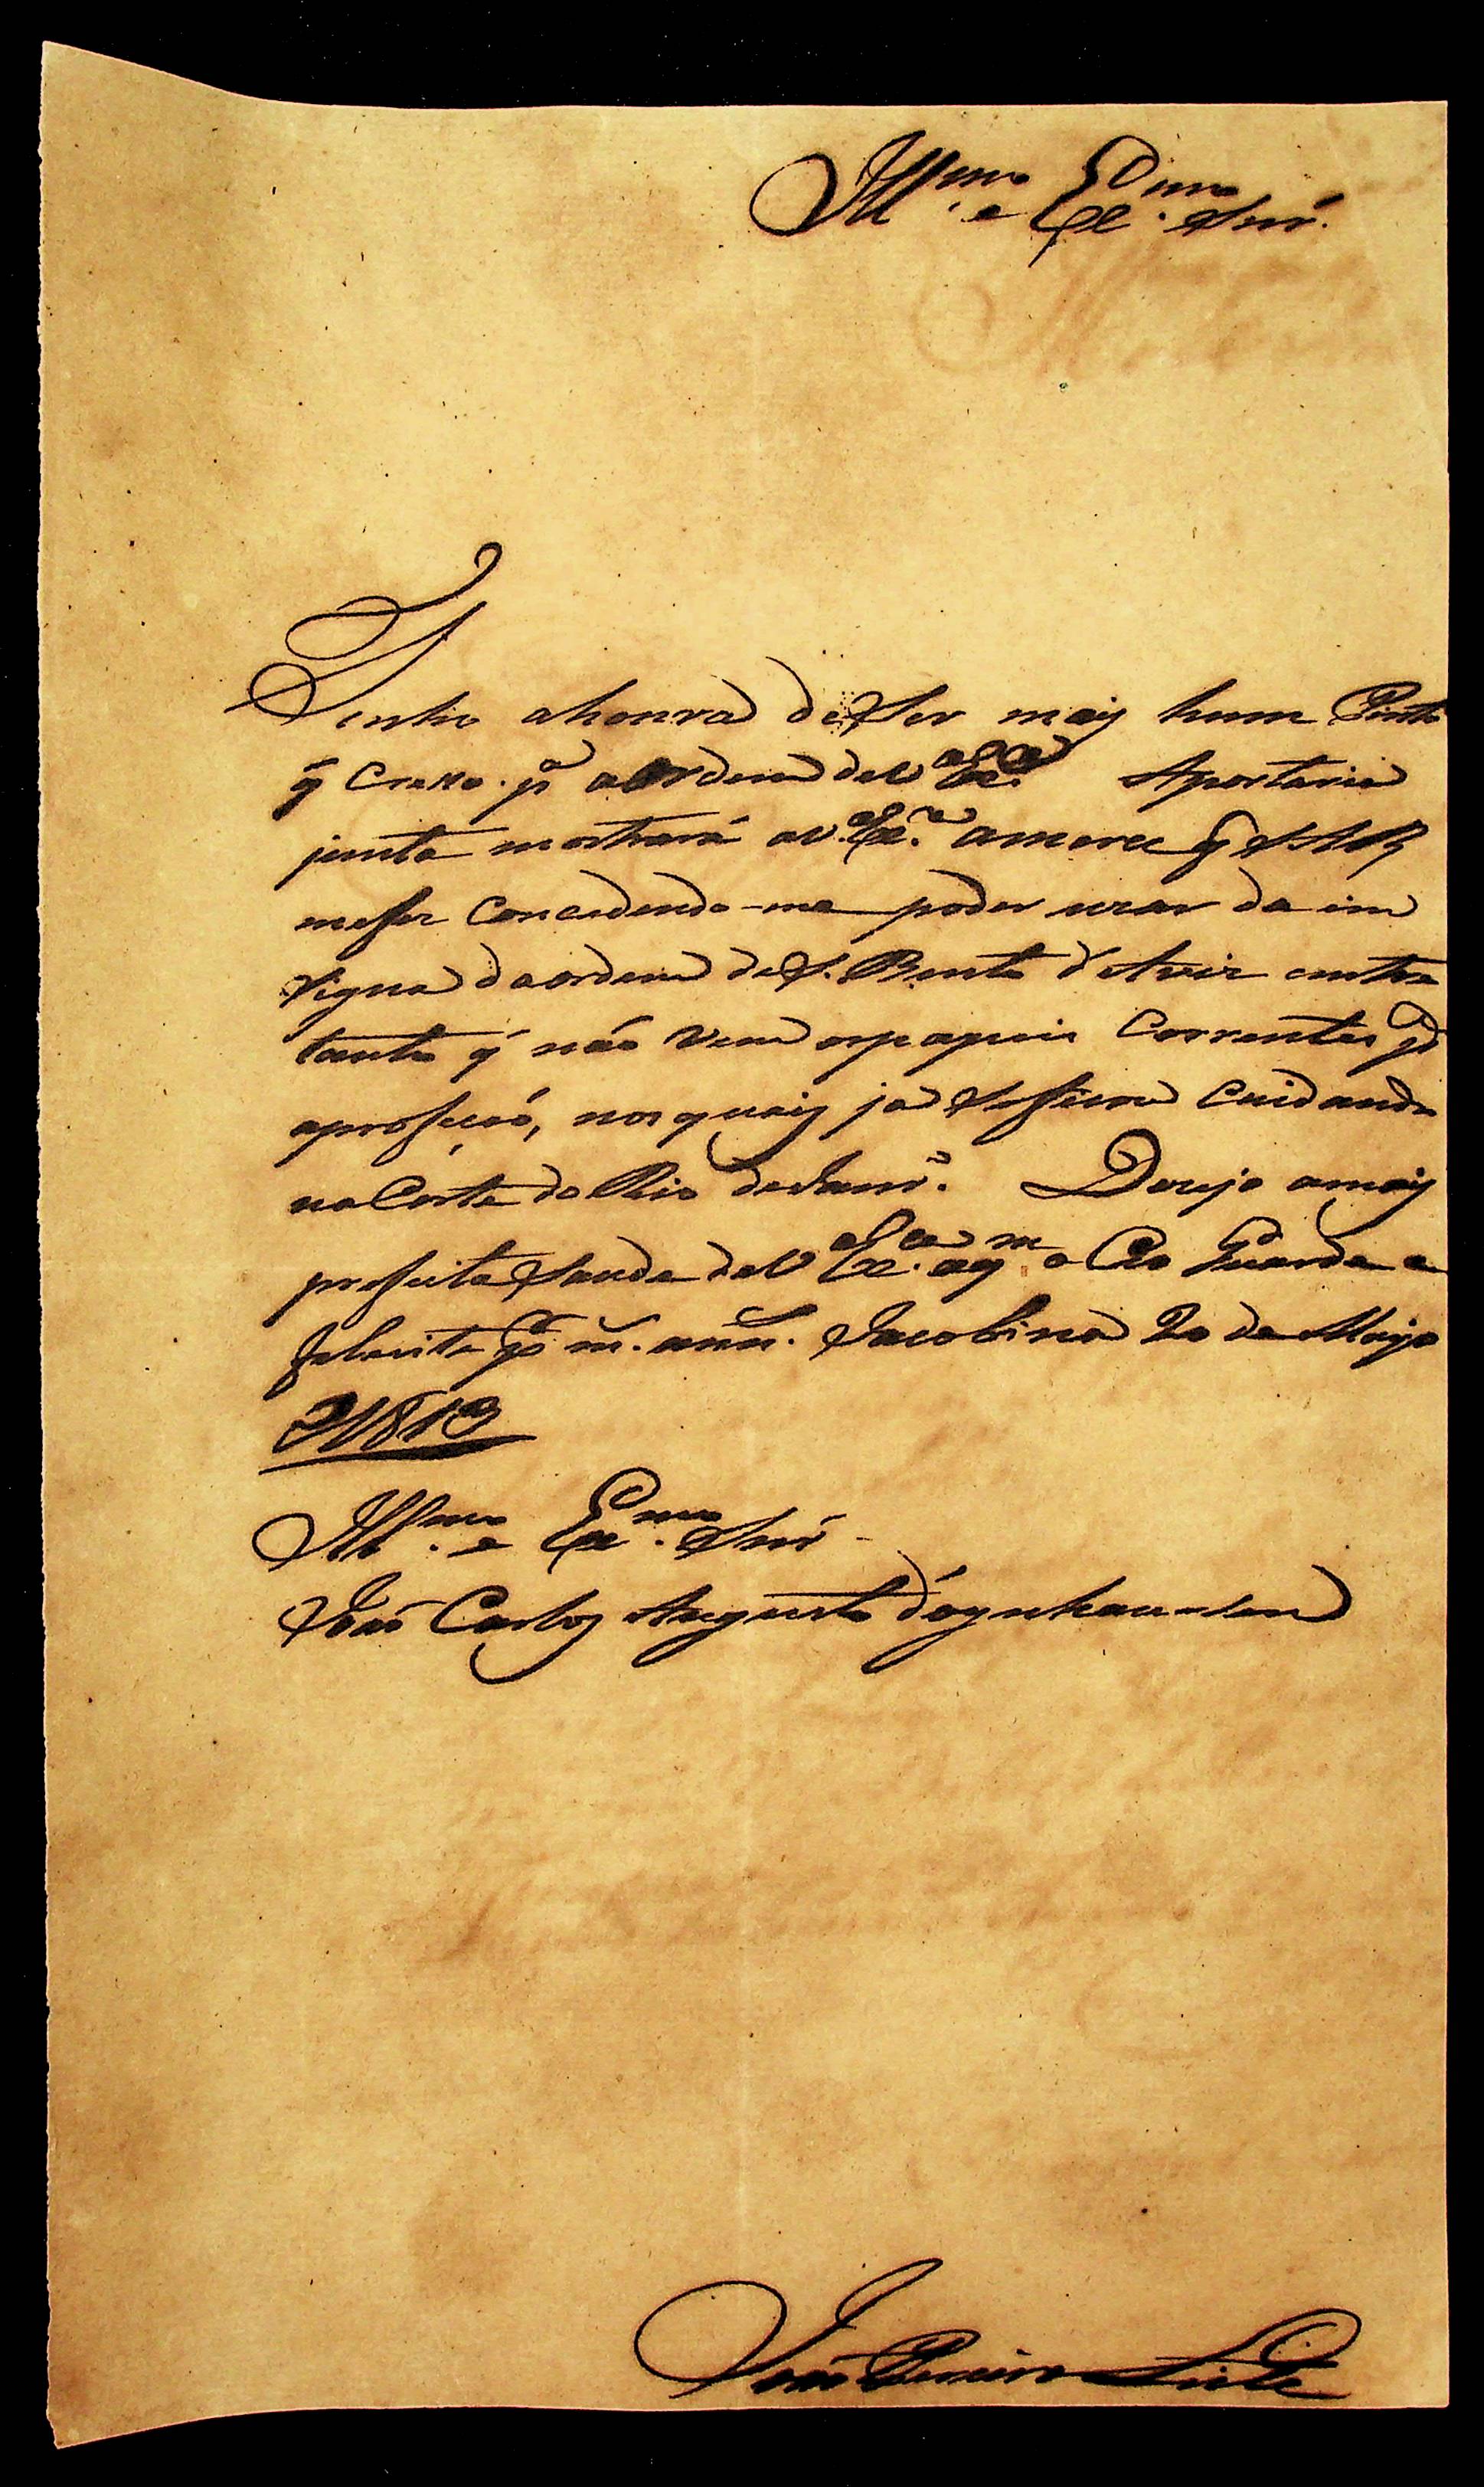 Ill.mo e Ex.mo Snr.
Tenho ahonra deSer mais hum Ponto
q̃ Cresso. pª aOrdem deV Ex.cª Aportaria
junta mostrará aV.Ex.ª amerce q̃ SAR
mefes Concedendo-me poder uzar da in
signa daordem deS. Bento d'Aviz entre
tanto q̃ não vem ospapeis Correntes pª
aprofição, nosquais já seficou Cuidando
naCorte do Rio deJanrº. Dezejo amais
profeita Saude deV Ex.cª aqm o Ceo Guarde e
felecite pr m. anns. Jacobina 20 de Mayo
D1813
Ill.mo e Ex.mo Snr
João Carlos Augusto d'ógnhausen
João Pereira Leite